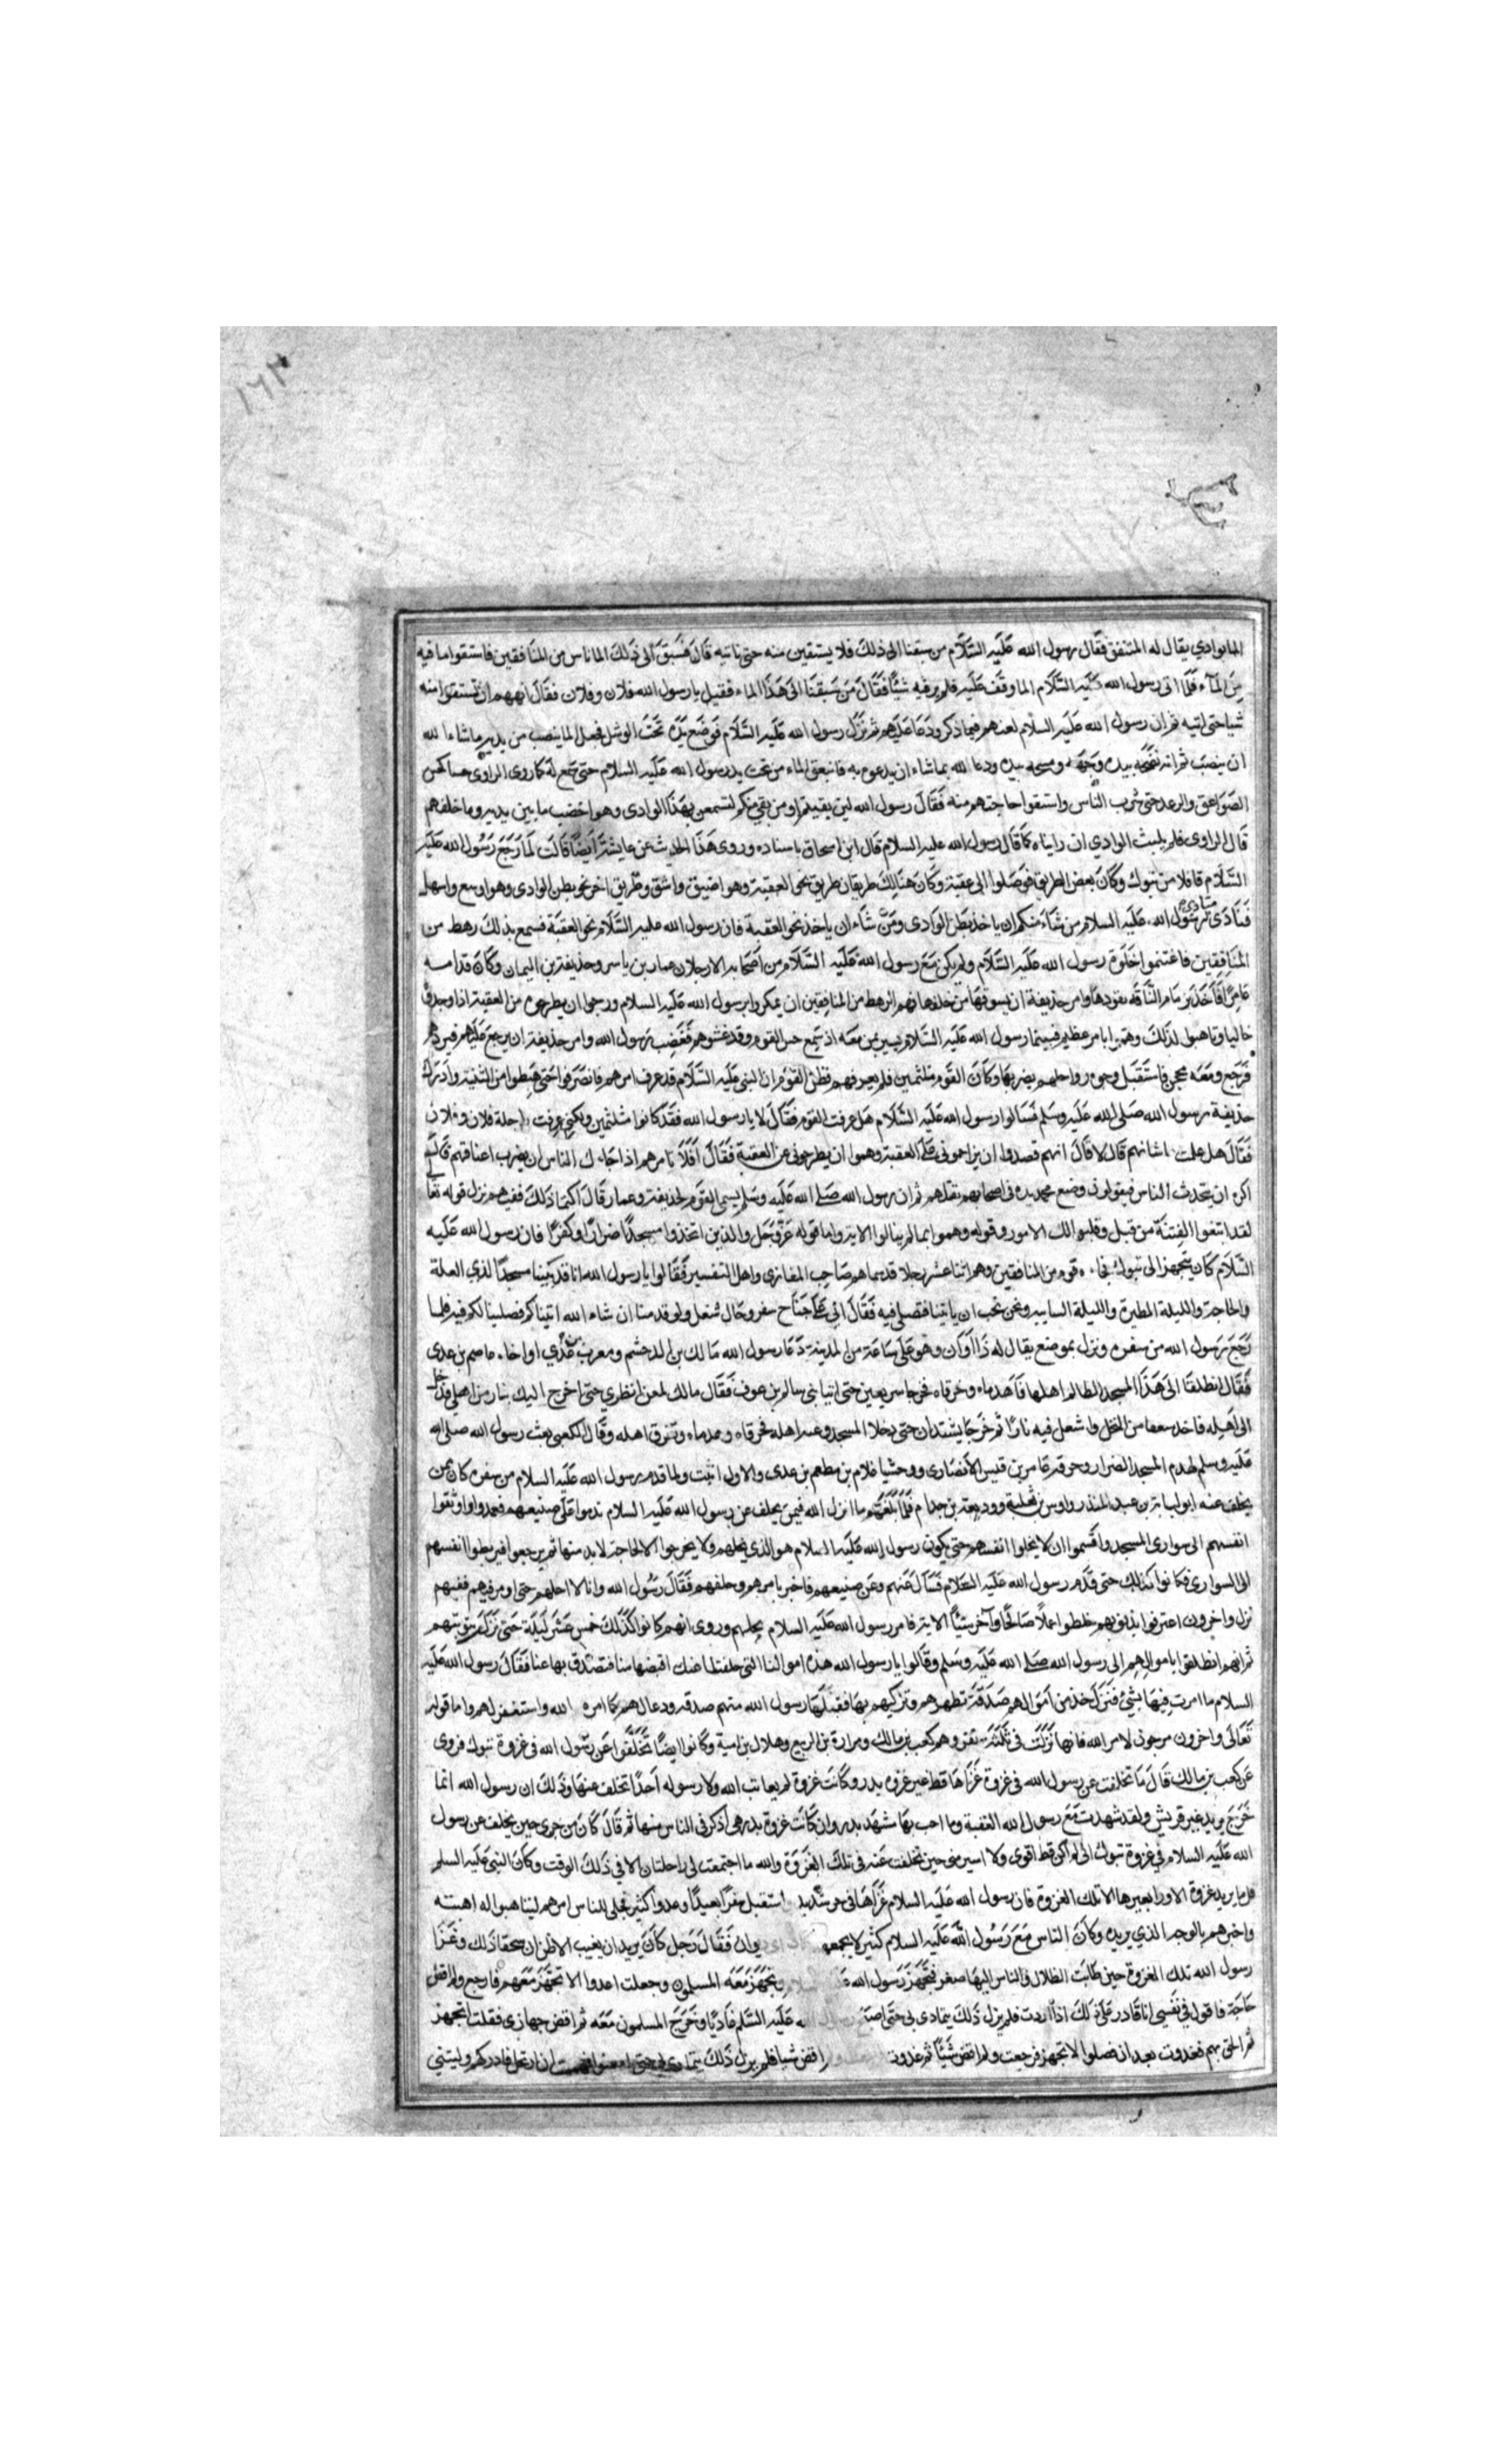 ١٦٢
الما بوادي يقال له المشفق فقال رسول الله عليه السلام من سبقنا الى ذلك فلا يستقين منه حتى ناتيه قال فسبق الى ذلك الما ناس من المنافقين فاستقوا ما فيه
من الماء فلما اتى رسول الله عليه السلام الما وقف عليه فلم ير فيه شيئا فقال من سبقنا الى هذا الماء فقيل يا رسول الله فلان وفلان فقال انههم ان تستقوا منه
شيا حتى اتيه ثم ان رسول الله عليه السلام لعنهم فيما ذكر ودعا عليهم ثم نزل رسول الله عليه السلام فوضع يده تحت الوشل فجعل الما ينصب من يديه ما شاء الله
ان ينصب ثم انه نضحه بيده وجهه ومسحه بيده ودعا الله بما شاء ان يدعو به فانبعق الماء من تحت يد رسول الله عليه السلام حتى سمع له كما روى الراوى حسا كحس
الصواعق والرعد حتى شرب الناس واستقوا حاجتهم منه فقال رسول الله لين بقيتم او من بقي منكم لتسمعن بهذا الوادى وهو اخضب ما بين يديه وما خلفهم
قال الراوى فلم يلبث الوادي ان رايناه كما قال رسول الله عليه السلام قال ابن اسحاق باسناده وروى هذا الحديث عن عايشة ايضا قالت لما رجع رسول الله عليه
السلام قافلا من تبوك وكان بعض الطريق فوصلوا الى عقبة وكان هنالك طريقان طريق نحو العقبة وهو اضيق واشق وطريق اخر نحو بطن الوادى وهو اوسع واسهل
فنادى منادى رسول الله عليه السلام من شاء منكم ان ياخذ بطن الوادى ومن شاء ان ياخذ نحو العقبة فان رسول الله عليه السلام نحو العقبة فسمع بذلك رهط من
المنافقين فاغتنموا خلوة رسول الله عليه السلام ولم يكن مع رسول الله عليه السلام من اصحابه الا رجلان عمار بن ياسر وحذيفة بن اليمان وكان قدامه
عامرا فاخذ بزمام الناقة يقودها وامر حذيفة ان يسوقها من خلفها فهم الرهط من المنافقين ان يمكروا برسول الله عليه السلام ورجوا ان يطرحوه من العقبة اذا وجدوه
خاليا وتاهبوا لذلك وهم بامر عظيم فبينما رسول الله عليه السلام يسير بمن معه اذ سمع حس القوم وقد غشوهم فغضب رسول الله وامر حذيفة ان يرجع عليهم فيردهم
فرجع ومعه محجن فاستقبل وجوه رواحلهم يضربها وكان القوم متلثمين فلم يعرفهم فظن القوم ان النبى عليه السلام قد عرف امرهم فانصرفوا حتى هبطوا من الثنية وادرك
حذيفة رسول الله صلى الله عليه وسلم فسالوا رسول الله عليه السلام هل عرفت القوم فقال لا يا رسول الله فقد كانوا متلثمين ولكني عرفت راحلة فلان وفلان
فقال هل علمت ما شانهم قال لا قال انهم قصدوا ان يزاحموني على العقبة وهموا ان يطرحوني عن العقبة فقال افلا نامرهم اذا جاءك الناس ان يضرب اعناقهم قال
اكره ان يتحدث الناس فيقولون وضع محمد يده فى اصحابه بقتلهم ثم ان رسول الله صلى الله عليه وسلم يسمى القوم لحذيفة وعمار قال اكتما ذلك ففيهم نزل قوله تعا
لقد ابتغوا الفتنة من قبل وقلبوا لك الامور وقوله وهموا بما لم ينالوا الاية واما قوله عز وجل والذين اتخذوا مسجدا ضرارا وكفرا فان رسول الله عليه
السلام كان يتجهز الى تبوك فجاءه قوم من المنافقين وهم اثنا عشر رجلا قد سماهم صاحب المغازى واهل التفسير فقالوا يا رسول الله انا قد بنينا مسجدا لذي العلة
والحاجة والليلة المطيرة والليلة السابيه ونحن نحب ان ياتينا فتصلى فيه فقال اني على جناح سفر وحال شغل ولو قدمنا ان شاء الله اتيناكم فصلينا لكم فيه فلما
رجع رسول الله من سفره ونزل بموضع يقال له ذا اوان وهو على ساعة من المدينة دعا رسول الله مالك بن الدخشم ومعن بن عدي او اخاه عاصم بن عدى
فقال انطلقا الى هذا المسجد الظالم اهلها فاهدماه وحرقاه فخرجا سريعين حتى اتيا بنى سالم بن عوف فقال مالك لمعن انظري حتى اخرج اليك بنار من اهلي فدخل
الى اهيله فاخذ سعفا من النخل واشعل فيه نارا ثم خرجا يشتدان حتى دخلا المسجد وعند اهله فحرقاه وهدماه وتفرق اهله وقال الكعبى بعث رسول الله صلى الله
عليه وسلم لهدم المسجد الضرار وحرقه عامر بن قيس الانصارى ووحشيا غلام بن مطعم بن عدى والاول اثبت ولما قدم رسول الله عليه السلام من سفره كان ممن
يخلف عنه ابو لبابة بن عبد المنذر واوس بن ثعلبة ووديعة بن حدام فلما بلغهم ما انزل الله فيمن يخلف عن رسول الله عليه السلام ندموا على صنيعهم فعمدوا واوثقوا
انفسهم الى سوارى المسجد واقسموا ان لا يحلوا انفسهم حتى يكون رسول الله عليه السلام هو الذي يحلهم ولا يخرجوا الا لحاجة لا بد منها ثم يرجعوا فيربطوا انفسهم
الى السوارى فكانوا كذلك حتى قدم رسول الله عليه السلام فسال عنهم وعن صنيعهم فاخبر بامرهم وحلفهم فقال رسول الله وانا لا احلهم حتى اومر فيهم ففيهم
نزل واخرون اعترفوا بذنوبهم خلطوا عملا صالحا وآخر سيئا الاية فامر رسول الله عليه السلام بحلهم وروى انهم كانوا كذلك خمس عشر ليلة حتى نزل توبتهم
ثم انهم انطلقوا باموالهم الى رسول الله صلى الله عليه وسلم وقالوا يا رسول الله هذه اموالنا التى خلفتنا عنك اقبضها منا فتصدق بها عنا فقال رسول الله عليه
السلام ما امرت فيها بشئ فنزل خذ من اموالهم صدقة تطهرهم وتزكيهم بها فقبلها رسول الله منهم صدقه ودعا لهم كما امره الله واستغفر لهم واما قوله
تعالى واخرون مرجون لامر الله فانها نزلت فى ثلثة نفر وهم كعب بن مالك ومرارة بن الربيع وهلال بن امية وكانوا ايضا تخلفوا عن رسول الله فى غزوة تبوك فروى
عن كعب بن مالك قال ما تخلفت عن رسول الله فى غزوة غزاها قط غير غزوه بدر وكانت غزوة لم يعاتب الله ولا رسوله احدا تخلف عنها وذلك ان رسول الله انما
خرج يريد عير قريش ولقد شهدت مع رسول الله العقبة وما احب بها مشهد بدر وان كانت غزوة بدر هى اذكر فى الناس منها ثم قال كان من خبرى حين يخلف عن رسول
الله عليه السلام في غزوة تبوك انى لم اكن قط اقوى ولا ايسر منى حين تخلفت عنه فى تلك الغزوة والله ما اجتمعت لى راحلتان الا في ذلك الوقت وكان النبى عليه السلم
قل ما يريد غزوة الا ورا بغيرها الا تلك الغزوة فان رسول الله عليه السلام غزاها فى حر شديد استقبل سفرا بعيدا وعدوا كثير فجلى للناس امرهم ليتاهبوا له اهبته
واخبرهم بالوجه الذي يريده وكان الناس مع رسول الله عليه السلام كثير لا يجمعهم وان فقال رجل كان يريد ان يغيب الا ظن ان سيخفا ذلك وغزا
رسول الله تلك الغزوة حين طابت الظلال فى الناس اليها صغر فتجهز رسول الله وتجهز معه المسلمون وجعلت اعدوا الا تجهز معهم فارجع ولم اقض
حاجة فاقول في نفسي انا قادر على ذلك اذا اردت فلم يزل ذلك يتمادى بى حتى اصبح عليه السلم غاديا وخرج المسلمون معه ثم اقض جهازى فقلت اتجهز
ثم الحق بهم فغدوت بعد ان فصلوا لا تجهز فرجعت ولم اقض شيئا ثم غدوت اقض شيا فلم يزل ذلك يتمادى بى حتى ان ارتحل فادركهم وليتني